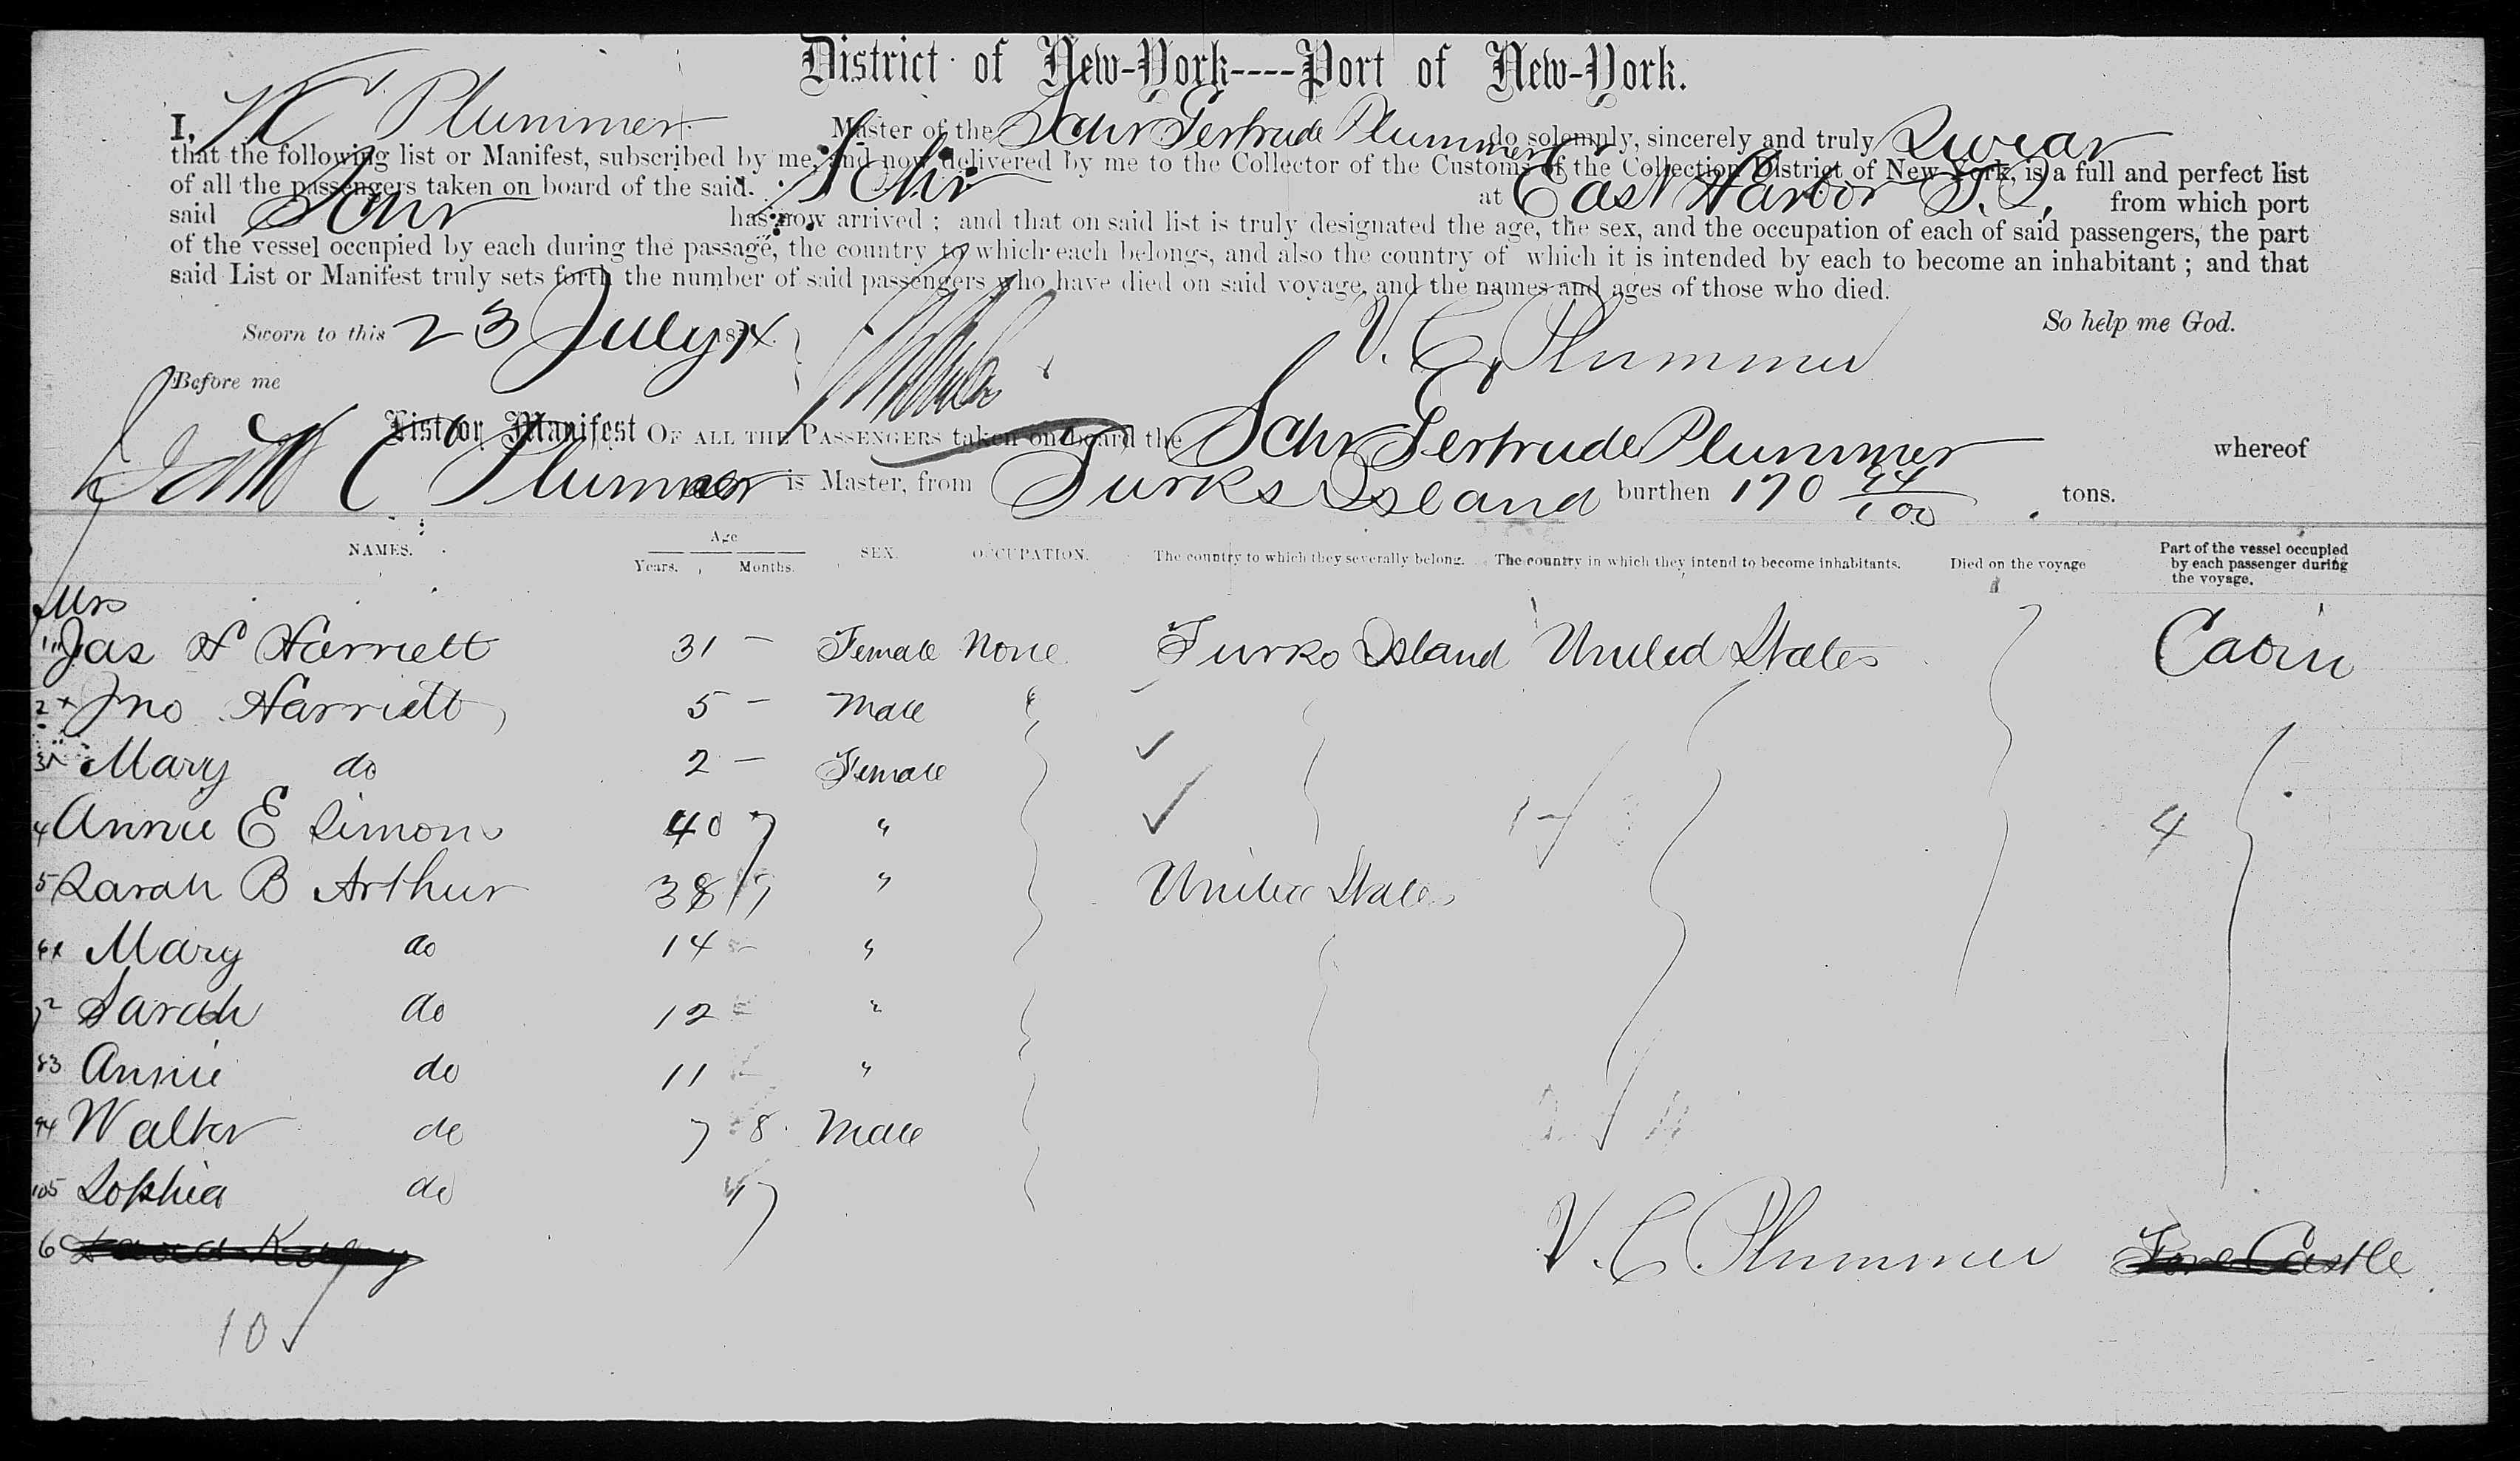 District of New-York----Port of New-York.
I, V C Plummer Master of the Schr Gertrude Plummer do solemnly, sincerely and truly Swear
that the following list or Manifest, subscribed by me, and now delivered by me to the Collector of the Customs of the Collection District of New York, is a full and perfect list
of all the passengers taken on board of the said Schr at East Harbor T.I. from which port
said Schr has now arrived ; and that on said list is truly designated the age, the sex, and the occupation of each of said passengers, the part
of the vessel occupied by each during the passage, the country to which each belongs, and also the country of which it is intended by each to become an inhabitant ; and that
said List or Manifest truly sets forth the number of said passengers who have died on said voyage, and the names and ages of those who died.
Sworn to this 23 July 187 V. C. Plummer So help me God.
Before me
List or Manifest OF ALL THE PASSENGERS taken on board the Schr Gertrude Plummer whereof
C Plummer is Master, from Turks Island burthen 170 94/100 tons.
NAMES. Age Years. Months. SEX. OCCUPATION. The country to which they severally belong. The country in which they intend to become inhabitants. Died on the voyage Part of the vessel occupied by each passenger during the voyage.
Mrs
1 Jas H Harriett 31 — Female None Turks Island United States Cabin
2 x Jno Harriett 5 — Male
3 Mary do 2 — Female ✓
4 Annie E Simons 40 " ✓ 4
5 Sarah B Arthur 38 " United States
6 Mary do 14 "
7 2 Sarah do 12 "
8 3 Annie do 11 "
9 4 Walter do 7 8 Male
10 5 Sophia do
V. C Plummer
6 Fore Castle
10 ✓